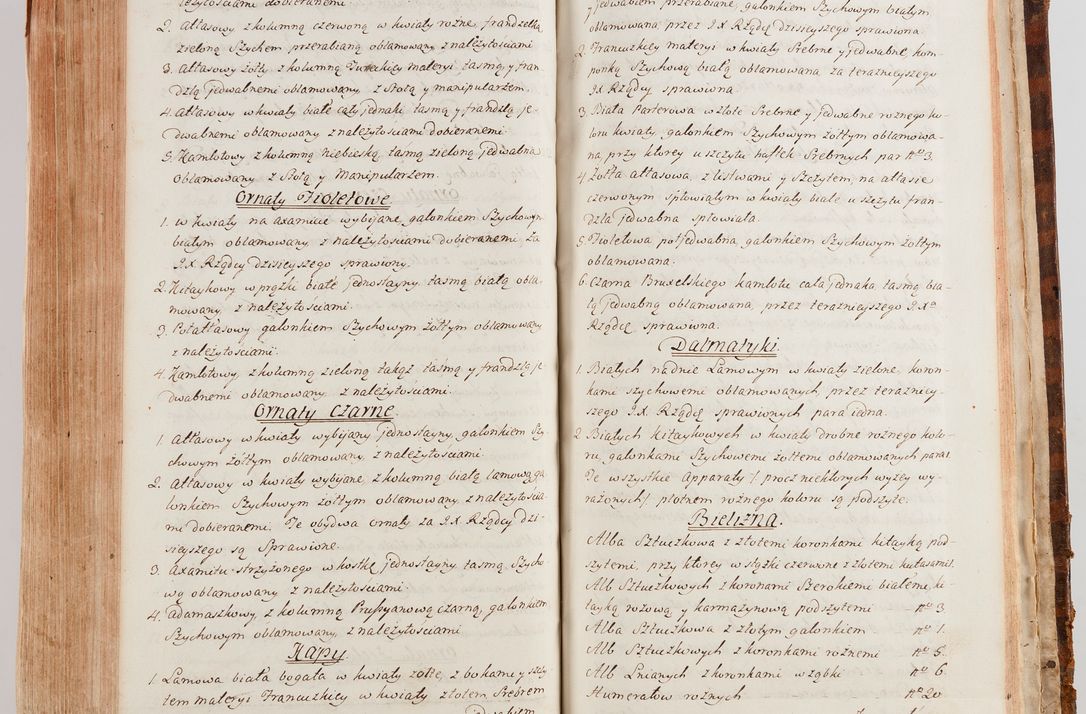 leżytościami dobieranemi.
2. Attasowy z kolumną czerwoną w kwiaty rożne frandzelką
zieloną Szychem przerabianą oblamowany z nalezytościami
3. Attasowy żołty z kolumną Tureckiey materyi taśmą y fran
dzlą jedwabnemi oblamowany z Stołą y manipularzem.
4. Attasowy w kwiaty białe cały jednaki taśmą y frandzlą je-
dwabnemi oblamowany z nalezytościami dobieranemi.
5. Kamlotowy z kolumną niebieską taśmą zieloną jedwabną
oblamowany z Stołą y Manipularzem.
Ornaty Fioletowe
1. w Kwiaty na axamicie wybijane galonkiem Szychowym
białym oblamowany z nalezytościami dobieranemi za
J.X. Rządcy dzisieyszego sprawiony.
2. Kitaykowy w prążki białe jednostayny taśmą białą obla-
mowany z nalezytościami.
3. Potattasowy galonkiem Szychowym żołtym oblamowany
z nalezytościami.
4. Kamlotowy z kolumną zieloną takąż taśmą y frandzlą je-
dwabnemi oblamowany z nalezytościami.
Ornaty Czarne.
1. Attasowy w kwiaty wybijany jednostayny galonkiem Szy-
chowym żołtym oblamowany z nalezytościami.
2. Attasowy w kwiaty wybijane z kolumną białą lamową ga-
lonkiem Szychowym żołtym oblamowany z nalezytościa-
mi dobieranemi. Te obydwa ornaty za J.X Rządcy dzi-
sieyszego są Sprawione.
3. Axamitu strzyżonego w kostkę jednostayny taśmą Szycho-
wą oblamowany z nalezytościami.
4. Adamaszkowy z kolumną Prussyanową czarną, galonkiem
Szychowym oblamowany z nalezytościami
Kapy
1. Lamowa biała bogata w kwiaty żołte, z bokami y szczy
tem materyi Francuzkiey w kwiaty złotem Srebrem
y jedwabiem przerabiane galonkiem Szychowym białym
oblamowana przez J.X Rządcę dzisieyszego sprawiona.
2. Francuzkiey materyi w kwiaty Srebrne y jedwabne, kom-
ponką Szychową białą oblamowana za teraznieyszego
J.X Rządcy sprawiona.
3. Biała Parterowa w złote Srebrne y jedwabne rożnego ko-
loru kwiaty, galonkiem Szychowym żołtym oblamowa-
na, przy ktorey u szczytu haftek Srebrnych par Nº 3.
4. Żołta attasowa, z listwami y Szczytem, na attasie
czerwonym spłowiałym w kwiaty białe u szczytu fran-
dzla jedwabna spłowiała.
5. Fioletowa potjedwabna, galonkiem Szychowym żołtym
oblamowana.
6. Czarna Bruxelskiego kamlotu cała jednaka taśmą bia-
łą jedwabną oblamowana, przez teraznieyszego J.X.
Rządcę sprawiona.
Dalmatyki.
1. Białych na dnie Lamowym w kwiaty zielone, koron-
kami szychowemi oblamowanych, przez terazniey-
szego J.X. Rządcę sprawionych para iedna.
2. Białych kitaykowych w kwiaty drobne rożnego kolo-
ru, galonkami Szychowemi żołtemi oblamowanych para 1.
Te wszystkie Apparaty /: procz niektorych wyżey wy-
rażonych :/ płotnem rożnego koloru są podszyte.
Bielizna.
Alba Sztuczkowa z złotemi koronkami kitayką pod-
szytemi, przy ktorey wstążki czerwone z złotemi kutasami 1.
Alb Sztuczkowych z koronami Szerokiemi białemi, ki-
tayką rożową y karmazynową podszytemi Nº 3
Alba Sztuczkowa z złotym galonkiem Nº 1.
Alb Sztuczkowych z koronkami rożnemi Nº 5.
Alb Lnianych z koronkami w ząbki Nº 6.
Humerałow rożnych Nº 20